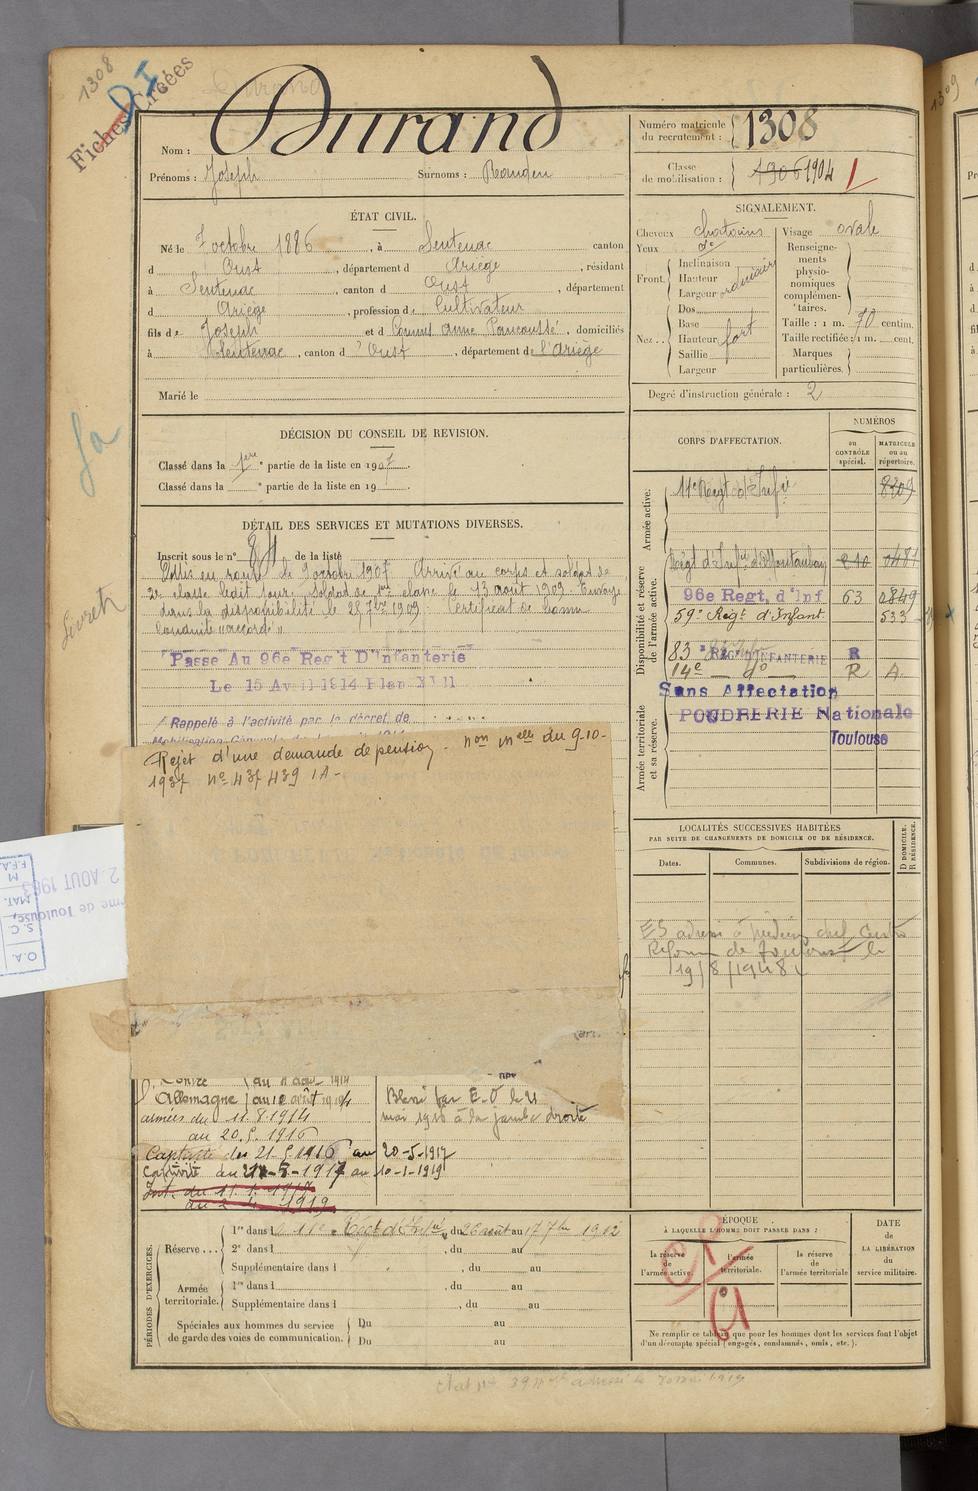 1308
Fiches Créées
Nom : Durand
Prénoms : Joseph Surnoms :
Numéro matricule du recrutement : 1308
Classe de mobilisation : 1906 1904
ÉTAT CIVIL.
Né le 7 octobre 1886, à Sentenac canton
d Oust, département d Ariège, résidant
à Sentenac, canton d Oust, département
d Ariège, profession de Cultivateur
fils de Joseph et d Anne, domiciliés
à Sentenac, canton d'Oust, département de l'Ariège
Marié le
SIGNALEMENT.
Cheveux chatains Visage ovale
Yeux do
Front. Inclinaison
Hauteur
Largeur
ordinaire
Nez.. Dos
Base
Hauteur fort
Saillie
Largeur
Renseignements physionomiques complémentaires.
Taille : 1 m. 70 centim.
Taille rectifiée : 1 m. cent.
Marques particulières.
Degré d'instruction générale : 2
DÉCISION DU CONSEIL DE REVISION.
Classé dans la 1ère partie de la liste en 1907.
Classé dans la e partie de la liste en 19
DÉTAIL DES SERVICES ET MUTATIONS DIVERSES.
Inscrit sous le n° de la liste
Mis en route le 9 octobre 1907. Arrivé au corps et soldat de
2e classe ledit jour. Soldat de 1re classe le 13 août 1909. Envoyé
dans la disponibilité le 25 7bre 1909. Certificat de bonne
conduite "accordé"
Passé Au 96e Reg't D'Infanterie
Le 15 Avril 1914 Plan XVII
Rappelé à l'activité par le décret de
Mobilisation Générale
Rejet d'une demande de pension - non melle du 9-10-
1937 N° 437 439 1A-
CORPS D'AFFECTATION.
NUMÉROS
au CONTRÔLE spécial.
MATRICULE ou au répertoire.
Armée active.
11e Regt d'Infie 8209
Disponibilité et réserve de l'armée active.
Régt d'Infie de Montauban
96e Regt, d'Inf 63 0849
59e Régt d'Infant. 533
83e REGt D'INFANTERIE R
14e do R A
Sans Affectation
POUDRERIE Nationale
Toulouse
Armée territoriale et sa réserve.
LOCALITÉS SUCCESSIVES HABITÉES
PAR SUITE DE CHANGEMENTS DE DOMICILE OU DE RÉSIDENCE.
Dates. Communes. Subdivisions de région. D DOMICILE. R RÉSIDENCE.
ES adressé à Médecin chef Centre
Réforme de Toulouse le
19/8/1948
2 AOUT 1963
O.A.
S.C.
MAT.
M
F.F.A.
l'Allemagne
armées du 11.8.1914
au 20.5.1916
Captivité du 21.5.1916 au 20-5-1917
Captivité du 21-5-1917 au 10-1-1919
Blessé par E.O le 21
mai 1916 à la jambe droite
PÉRIODES D'EXERCICES.
Réserve... 1re dans le 11e Régt d'Infie, du 26 août au 17 7bre 1912
2e dans l , du au
Supplémentaire dans l , du au
Armée territoriale. 1re dans l , du au
Supplémentaire dans l , du au
Spéciales aux hommes du service de garde des voies de communication. Du au
Du au
ÉPOQUE
À LAQUELLE L'HOMME DOIT PASSER DANS :
la réserve de l'armée active.
l'armée territoriale.
la réserve de l'armée territoriale
DATE de LA LIBÉRATION du service militaire.
Ne remplir ce tableau que pour les hommes dont les services font l'objet
d'un décompte spécial (engagés, condamnés, omis, etc.).